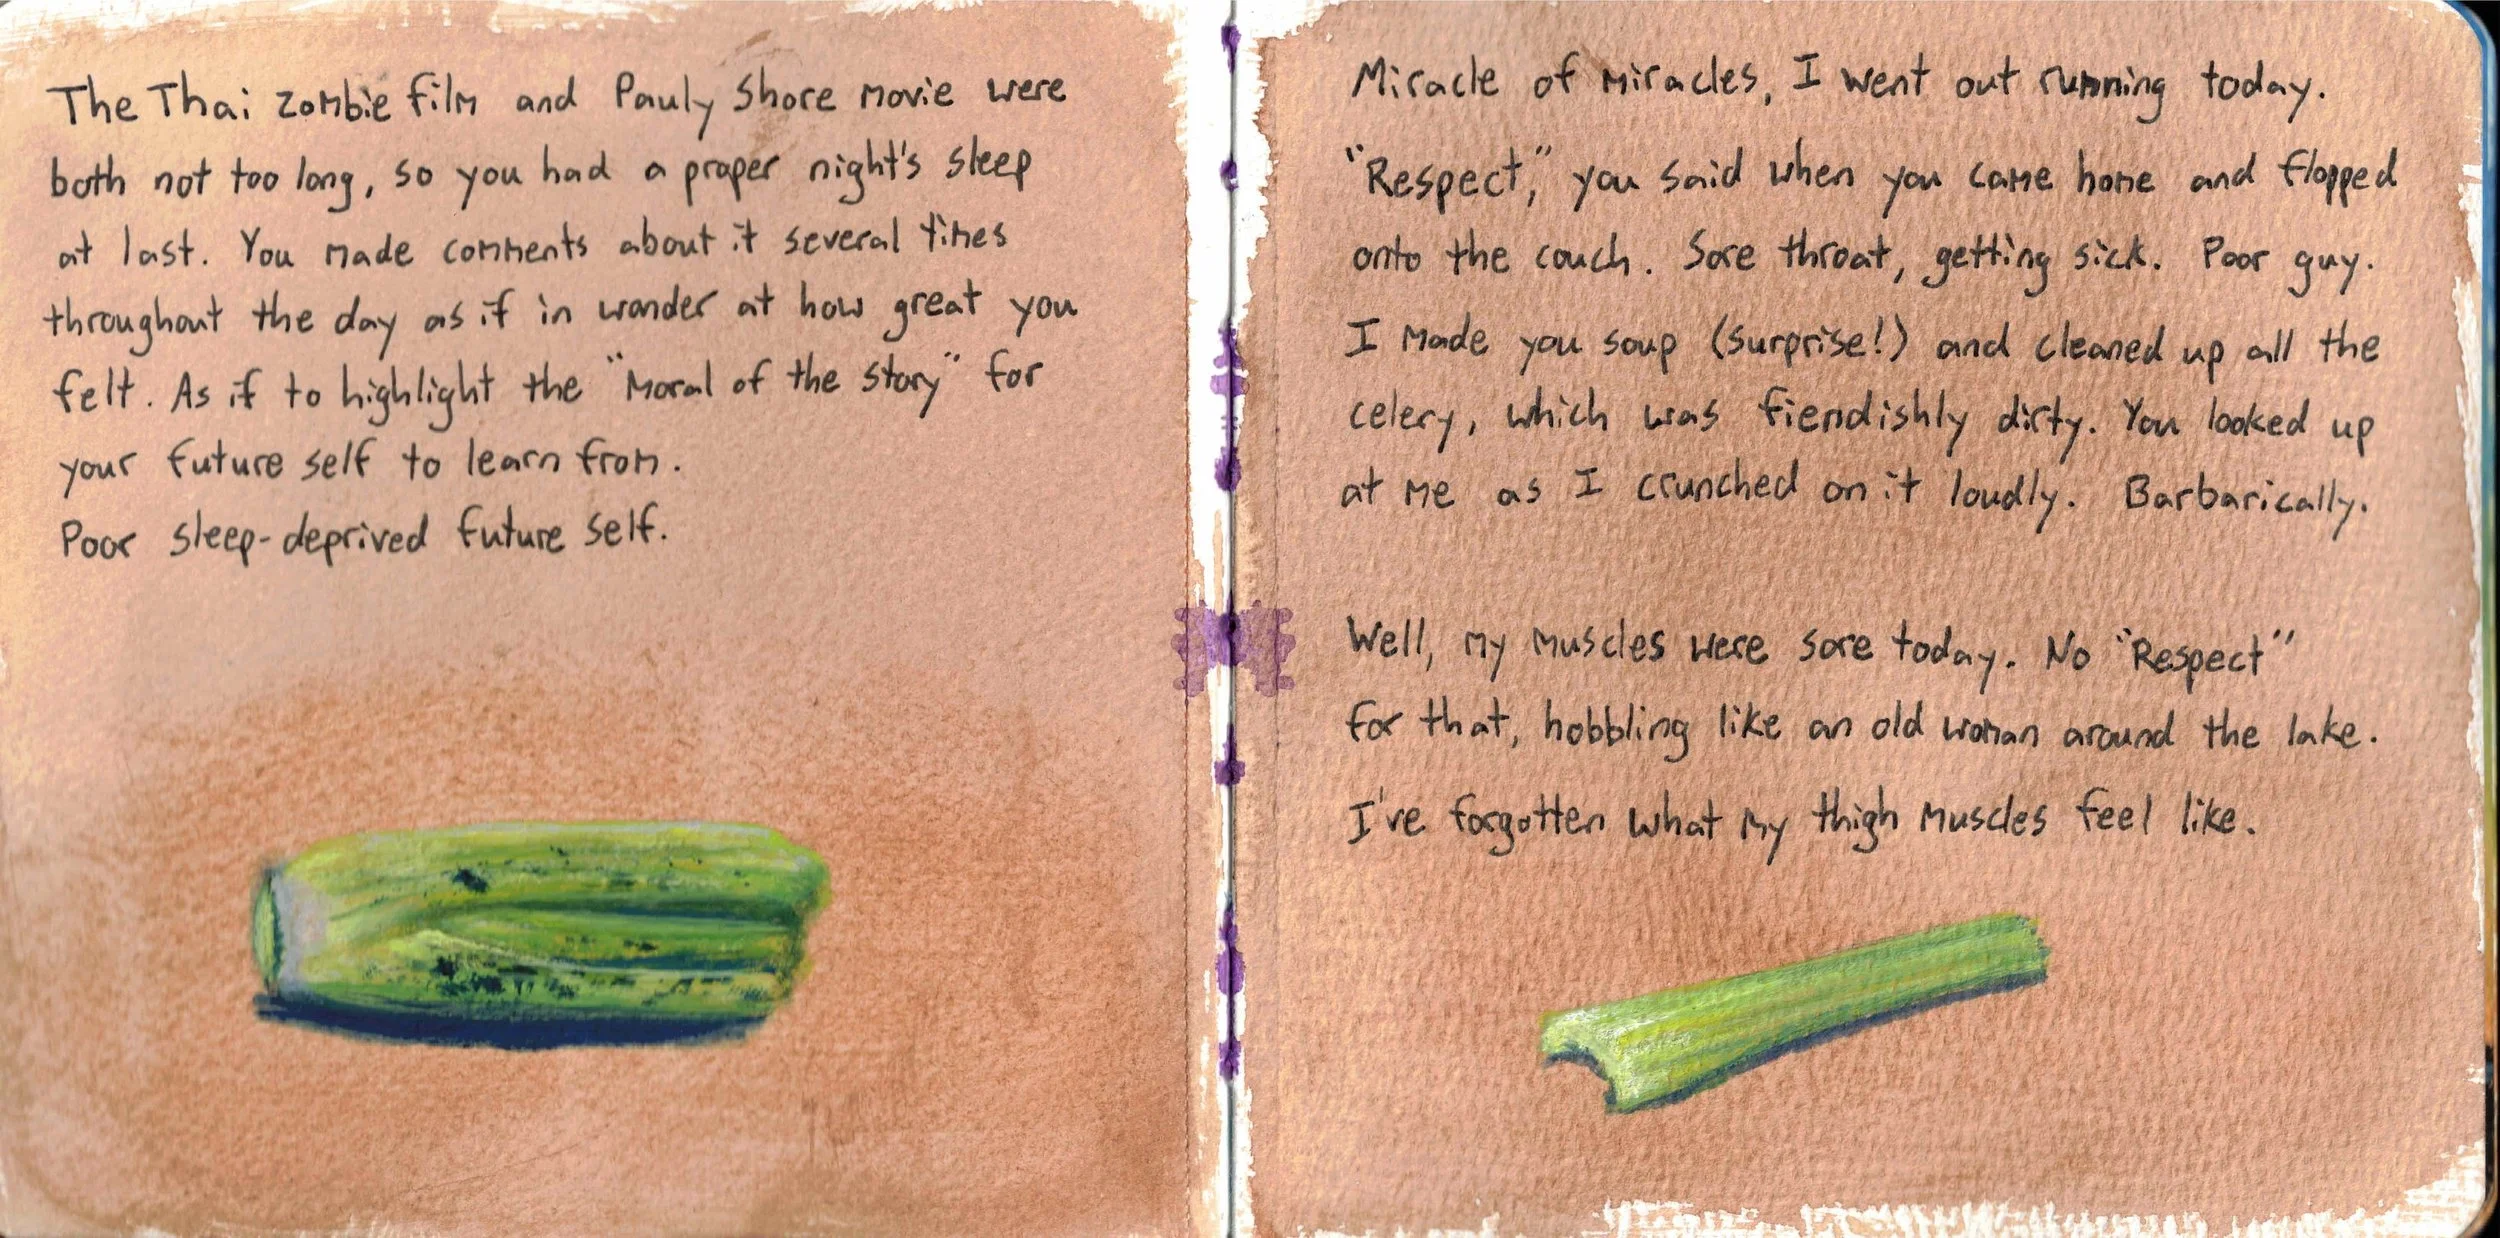 The Thai zombie film and Pauly Shore movie were
both not too long, so you had a proper night's sleep
at last. You made comments about it several times
throughout the day as if in wonder at how great you
felt. As if to highlight the "Moral of the Story" for
your future self to learn from.
Poor sleep-deprived future self.
Miracle of miracles, I went out running today.
"Respect," you said when you came home and flopped
onto the couch. Sore throat, getting sick. Poor guy.
I made you soup (surprise!) and cleaned up all the
celery, which was fiendishly dirty. You looked up
at me as I crunched on it loudly. Barbarically.
Well, my muscles were sore today. No "Respect"
for that, hobbling like an old woman around the lake.
I've forgotten what my thigh muscles feel like.